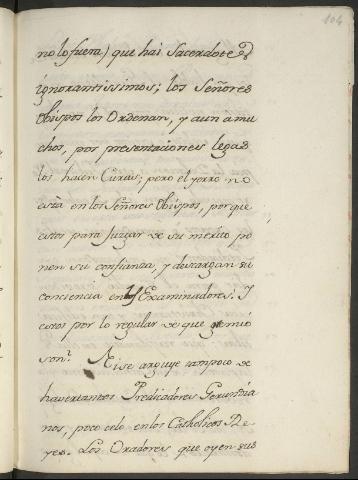 104
no lo fuera) que hai Sacerdotes
ignorantissimos; los Señores
Obispos los Ordenan, y aun a mu
chos, por presentaciones legas
los hacen Curas; pero el yerro no
està en los Señores Obispos, porque
estos para Juzgar de su merito po
nen su confianza y descargan su
conciencia en Examinadores. Y
estos por lo regular de que gremio
son? Ni se arguye tampoco de
haver tantos Predicadores Gerundia
nos, poco celo en los Catholicos Re
yes. Los Oradores que oyen sus